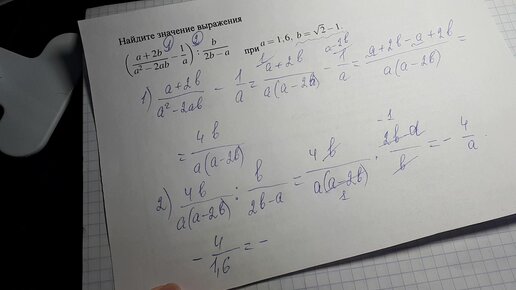 Найдите значение выражения
(a + 2b / a² − 2ab − 1/a) : b / 2b − a при a = 1,6, b = √2 − 1.
1) a + 2b / a² − 2ab − 1/a = a + 2b / a(a − 2b) − 1/a = a + 2b − a + 2b / a(a − 2b) =
= 4b / a(a − 2b)
2) 4b / a(a − 2b) : b / 2b − a = 4b / a(a − 2b) · 2b − a / b = − 4/a.
− 4 / 1,6 = −